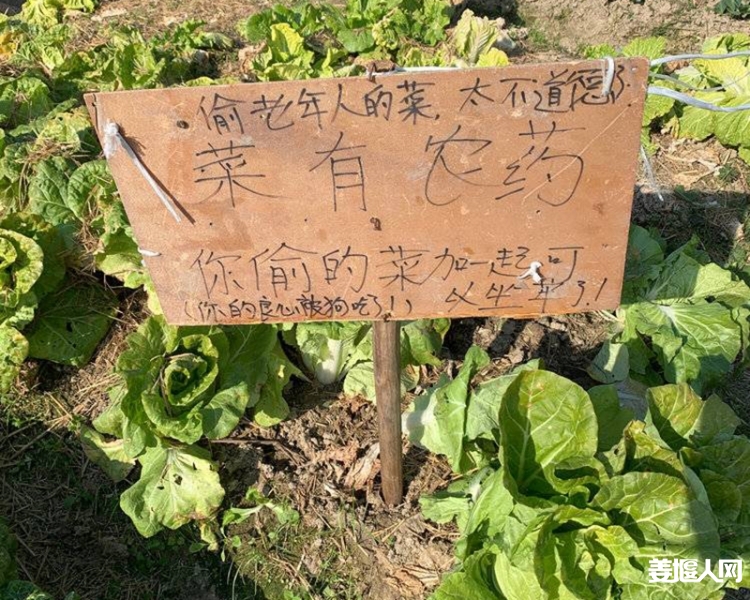 偷老年人的菜，太不道德了.
菜有农药
你偷的菜加一起可
以坐牢了！
（你的良心被狗吃了！）
姜堰人网